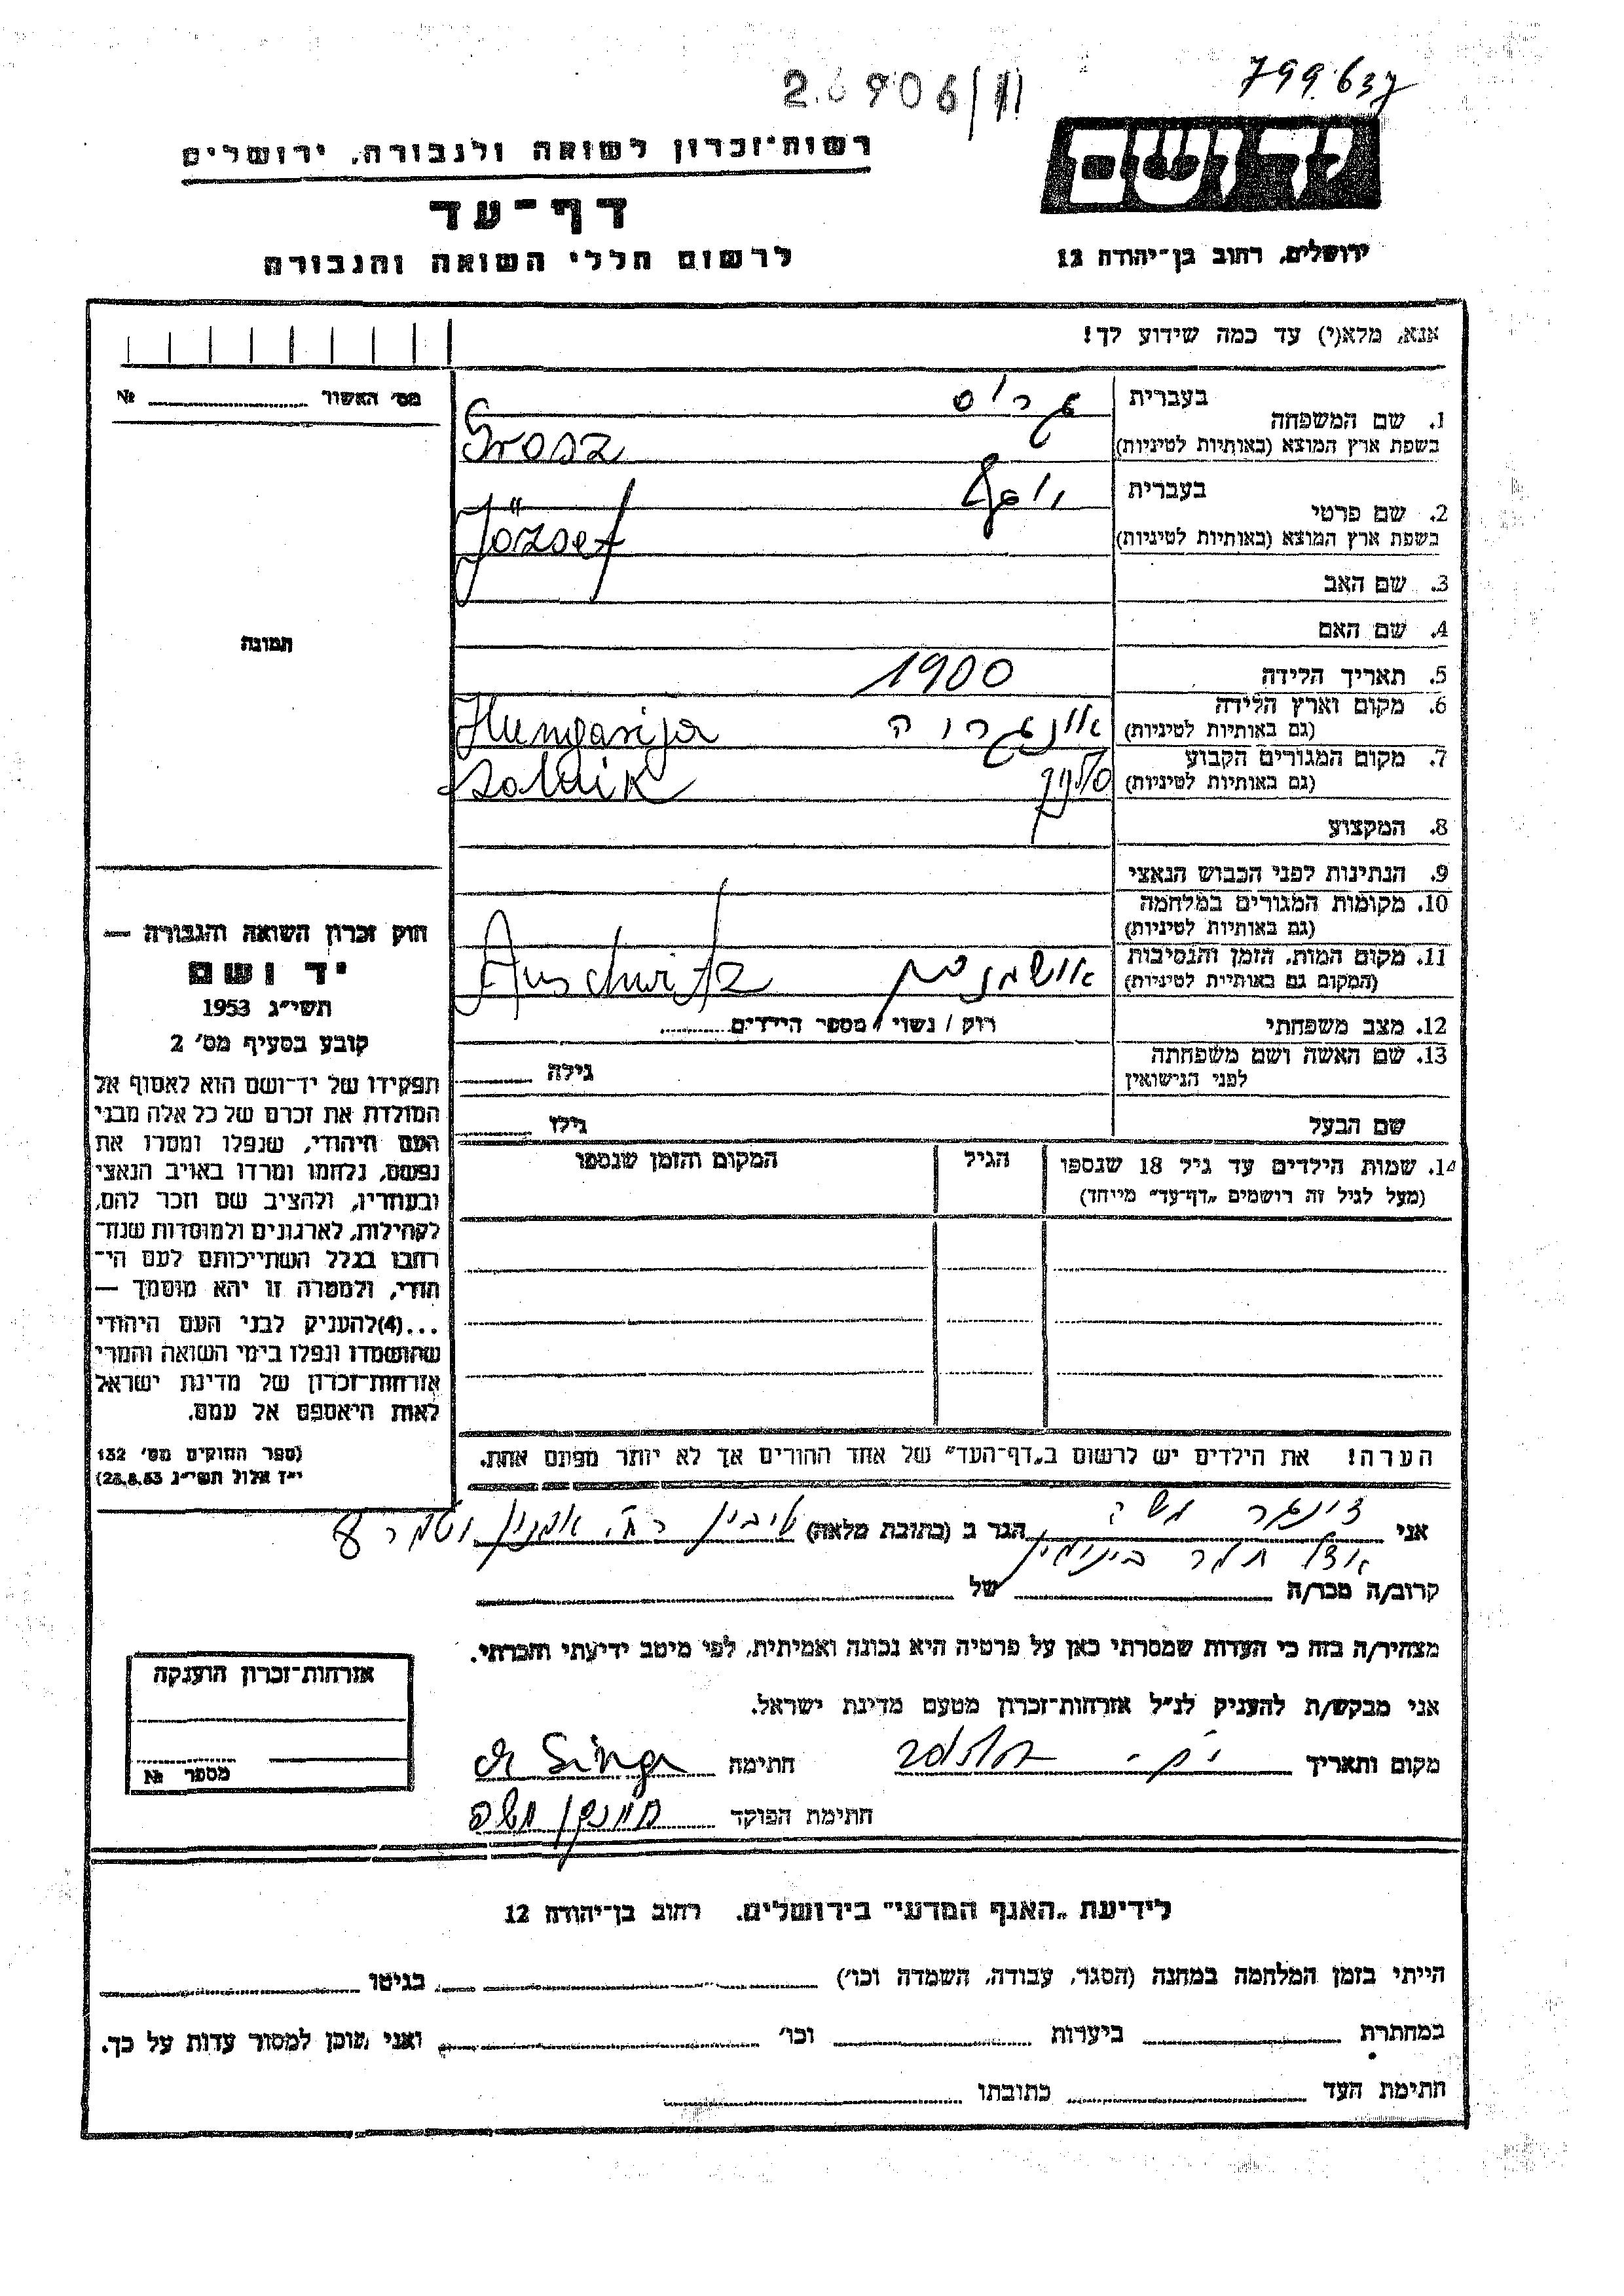 799.637
2.6906/III
יד ושם
ירושלים, רחוב בן־יהודה 12
רשות־זכרון לשואה ולגבורה, ירושלים
דף־עד
לרשום חללי השואה והגבורה
אנא, מלא(י) עד כמה שידוע לך!
מס׳ האשור № 
1. שם המשפחה
בעברית גרוס
בשפת ארץ המוצא (באותיות לטיניות) Grosz
2. שם פרטי
בעברית יוסף
בשפת ארץ המוצא (באותיות לטיניות) József
3. שם האב
4. שם האם
תמונה
5. תאריך הלידה 1900
6. מקום וארץ הלידה אונגריה Hungarija
(גם באותיות לטיניות)
7. מקום המגורים הקבוע סולניק Szolnik
(גם באותיות לטיניות)
8. המקצוע
9. הנתינות לפני הכבוש הנאצי
10. מקומות המגורים במלחמה
(גם באותיות לטיניות)
11. מקום המות, הזמן והנסיבות Auschwitz
(המקום גם באותיות לטיניות)
12. מצב משפחתי רוק / נשוי / מספר הילדים
13. שם האשה ושם משפחתה גילה
לפני הנישואין
שם הבעל גילו
14. שמות הילדים עד גיל 18 שנספו הגיל המקום והזמן שנספו
(מעל לגיל זה רושמים „דף־עד״ מיוחד)
הערה! את הילדים יש לרשום ב„דף־העד״ של אחד ההורים אך לא יותר מפעם אחת.
חוק זכרון השואה והגבורה —
יד ושם
תשי״ג 1953
קובע בסעיף מס׳ 2
תפקידו של יד־ושם הוא לאסוף אל
המולדת את זכרם של כל אלה מבני
העם היהודי, שנפלו ומסרו את
נפשם, נלחמו ומרדו באויב הנאצי
ובעוזריו, ולהציב שם וזכר להם,
לקהילות, לארגונים ולמוסדות שנח־
רבו בגלל השתייכותם לעם הי־
הודי, ולמטרה זו יהא מוסמך —
...(4)להעניק לבני העם היהודי
שהושמדו ונפלו בימי השואה והמרי
אזרחות־זכרון של מדינת ישראל
לאות היאספם אל עמם.
(ספר החוקים מס׳ 132
י״ז אלול תשי״ג 23.8.53)
אני זינגר משה הגר ב (כתובת מלאה) רח׳ אמנון ותמר
אצל תמר בינימין
קרוב/ה מכר/ה של
מצהיר/ה בזה כי העדות שמסרתי כאן על פרטיה היא נכונה ואמיתית, לפי מיטב ידיעתי והכרתי.
אני מבקש/ת להעניק לנ״ל אזרחות־זכרון מטעם מדינת ישראל.
מקום ותאריך חתימה Singer
חתימת הפוקד משה
אזרחות־זכרון הוענקה
מספר №
לידיעת „האגף המדעי״ בירושלים. רחוב בן־יהודה 12
הייתי בזמן המלחמה במחנה (הסגר, עבודה, השמדה וכו׳) בגיטו
במחתרת ביערות וכו׳ ואני מוכן למסור עדות על כך.
חתימת העד כתובתו